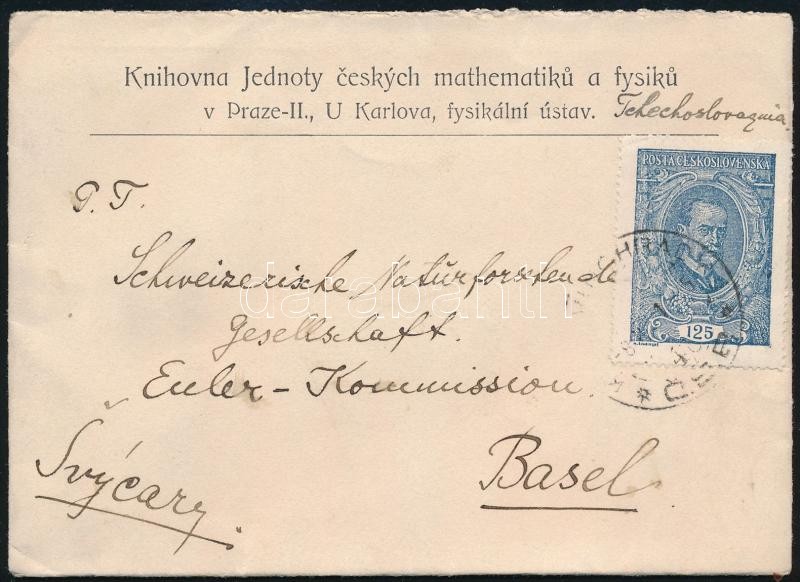 Knihovna Jednoty českých mathematiků a fysiků
v Praze-II., U Karlova, fysikální ústav. Tchechoslovaquia
POŠTA ČESKOSLOVENSKÁ
125
P. T.
Schweizerische Naturforschende
Gesellschaft.
"Euler-Kommission.
Basel
Švýcary.
darabanth